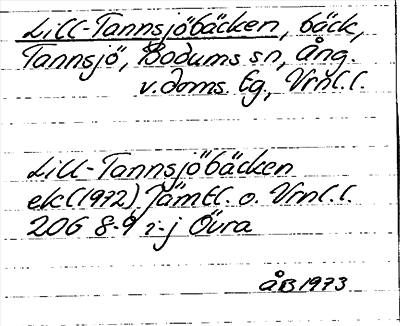 Lill-Tannsjöbäcken, bäck,
Tannsjö, Bodums sn, Ång.
v.doms. Eg, Vrnl.l.
Lill-Tannsjöbäcken
ek(1972) Jämtl. o. Vrnl.l.
20G 8-9 i-j Övra
ÅB 1973